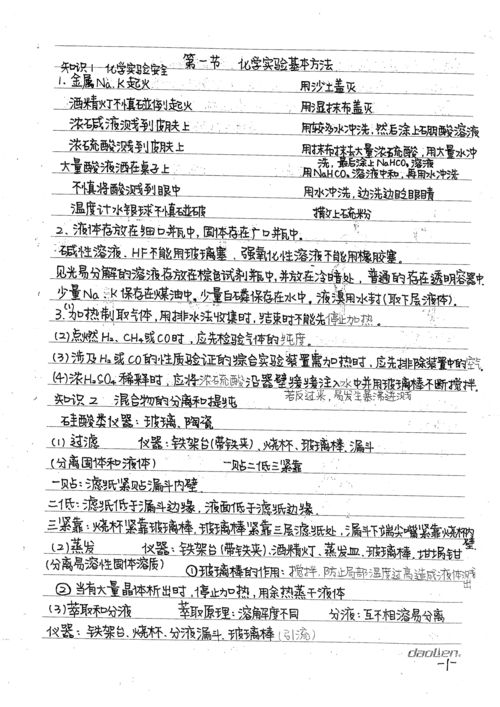 第一节 化学实验基本方法
知识1 化学实验安全
1. 金属Na、K起火 用沙土盖灭
酒精灯不慎碰倒起火 用湿抹布盖灭
浓碱液溅到皮肤上 用较多水冲洗,然后涂上硼酸溶液
浓硫酸溅到皮肤上 用抹布抹去大量浓硫酸,用大量水冲洗,最后涂上NaHCO₃溶液
大量酸液洒在桌子上 用NaHCO₃溶液中和,再用水冲洗
不慎将酸溅到眼中 用水冲洗,边洗边眨眼睛
温度计水银球不慎碰破 撒上硫粉
2、液体存放在细口瓶中,固体存在广口瓶中。
碱性溶液、HF不能用玻璃塞,强氧化性溶液不能用橡胶塞.
见光易分解的溶液存放在棕色试剂瓶中,并放在冷暗处,普通的存在透明容器中
少量Na、K保存在煤油中。少量白磷保存在水中。液溴用水封(取下层液体).
3.(1)加热制取气体,用排水法收集时,结束时不能先停止加热。
(2)点燃H₂、CH₄或CO时,应先检验气体的纯度.
(3)涉及H₂或CO的性质验证的综合实验装置需加热时,应先排除装置中的空气
(4)浓H₂SO₄稀释时,应将浓硫酸沿器壁慢慢注入水中并用玻璃棒不断搅拌.
若反过来,易发生暴沸迸溅
知识2 混合物的分离和提纯
硅酸类仪器:玻璃、陶瓷
(1)过滤 仪器:铁架台(带铁夹)、烧杯、玻璃棒、漏斗
(分离固体和液体) 一贴二低三紧靠
一贴:滤纸紧贴漏斗内壁.
二低:滤纸低于漏斗边缘,液面低于滤纸边缘.
三紧靠:烧杯紧靠玻璃棒,玻璃棒紧靠三层滤纸处,漏斗下端尖嘴紧靠烧杯内壁
(2)蒸发 仪器:铁架台(带铁夹)、酒精灯、蒸发皿、玻璃棒、坩埚钳
(分离易溶性固体溶质) ①玻璃棒的作用:搅拌,防止局部温度过高造成液体溅出
②当有大量晶体析出时,停止加热,用余热蒸干液体
(3)萃取和分液 萃取原理:溶解度不同 分液:互不相溶易分离
仪器:铁架台、烧杯、分液漏斗、玻璃棒(引流)
daolien.
-1-